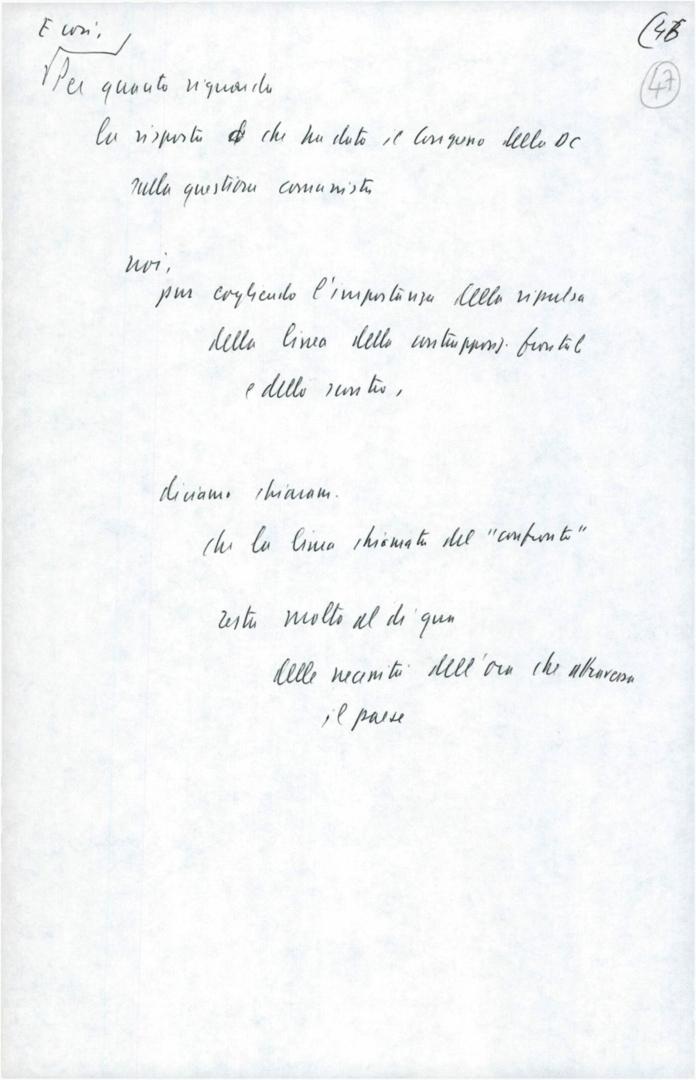 E così,
(46
47
Per quanto riguarda
la risposta che ha dato il Congresso della DC
sulla questione comunista
noi,
pur cogliendo l'importanza della ripulsa
della linea della contrappos. frontale
e dello scontro,
diciamo chiaram.
che la linea chiamata del "confronto"
resta molto al di qua
delle necessità dell'ora che attraversa
il paese